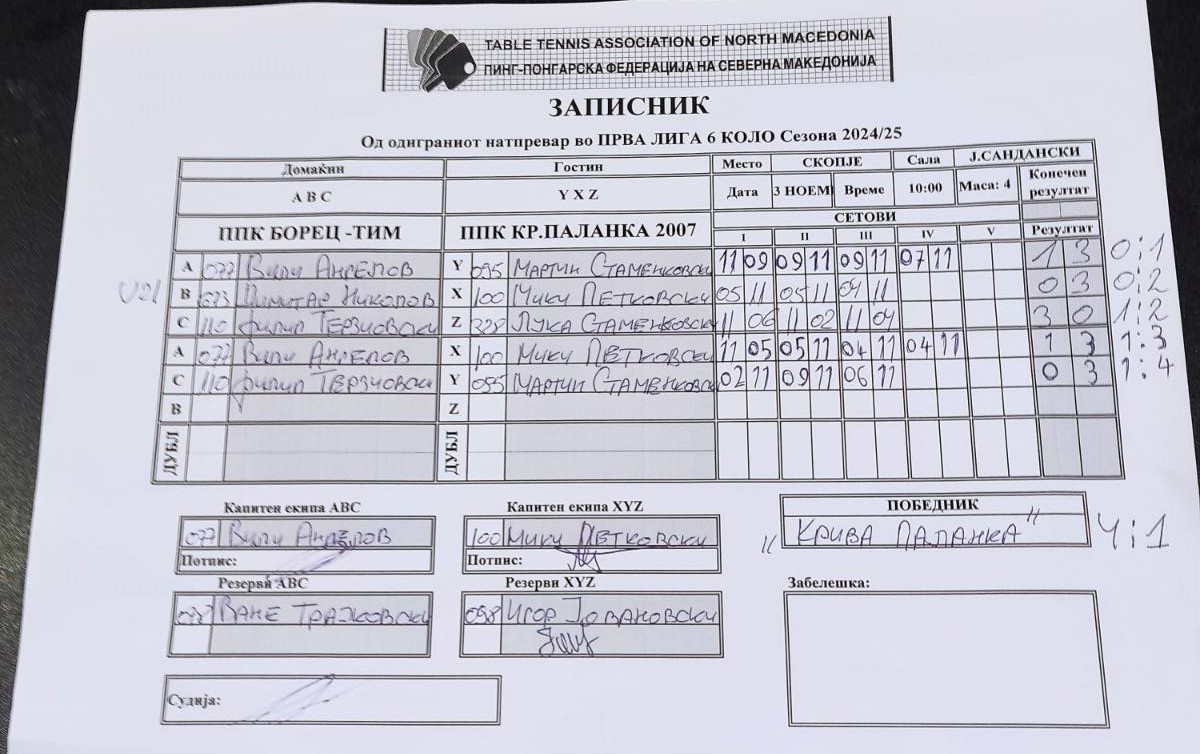 TABLE TENNIS ASSOCIATION OF NORTH MACEDONIA
ПИНГ-ПОНГАРСКА ФЕДЕРАЦИЈА НА СЕВЕРНА МАКЕДОНИЈА
ЗАПИСНИК
Од одиграниот натпревар во ПРВА ЛИГА 6 КОЛО Сезона 2024/25
Домаќин Гостин Место СКОПЈЕ Сала Ј.САНДАНСКИ
A B C Y X Z Дата 3 НОЕМ Време 10:00 Маса: 4 Конечен резултат
ППК БОРЕЦ -ТИМ ППК КР.ПАЛАНКА 2007 СЕТОВИ
I II III IV V Резултат
A 077 Вили Ангелов Y 095 Мартин Стаменковски 11 09 09 11 09 11 07 11 1 3 0:1
U21 B 073 Димитар Николов X 100 Мики Петковски 05 11 05 11 04 11 0 3 0:2
C 110 Филип Терзиовски Z 328 Лука Стаменковски 11 06 11 02 11 04 3 0 1:2
A 077 Вили Ангелов X 100 Мики Петковски 11 05 05 11 04 11 04 11 1 3 1:3
C 110 Филип Терзиовски Y 095 Мартин Стаменковски 02 11 09 11 06 11 0 3 1:4
B Z
ДУБЛ ДУБЛ
Капитен екипа ABC Капитен екипа XYZ ПОБЕДНИК
077 Вили Ангелов 100 Мики Петковски "Крива Паланка" 4:1
Потпис: Потпис:
Резерви ABC Резерви XYZ Забелешка:
Ване Трајковски 098 Игор Јовановски
Судија: